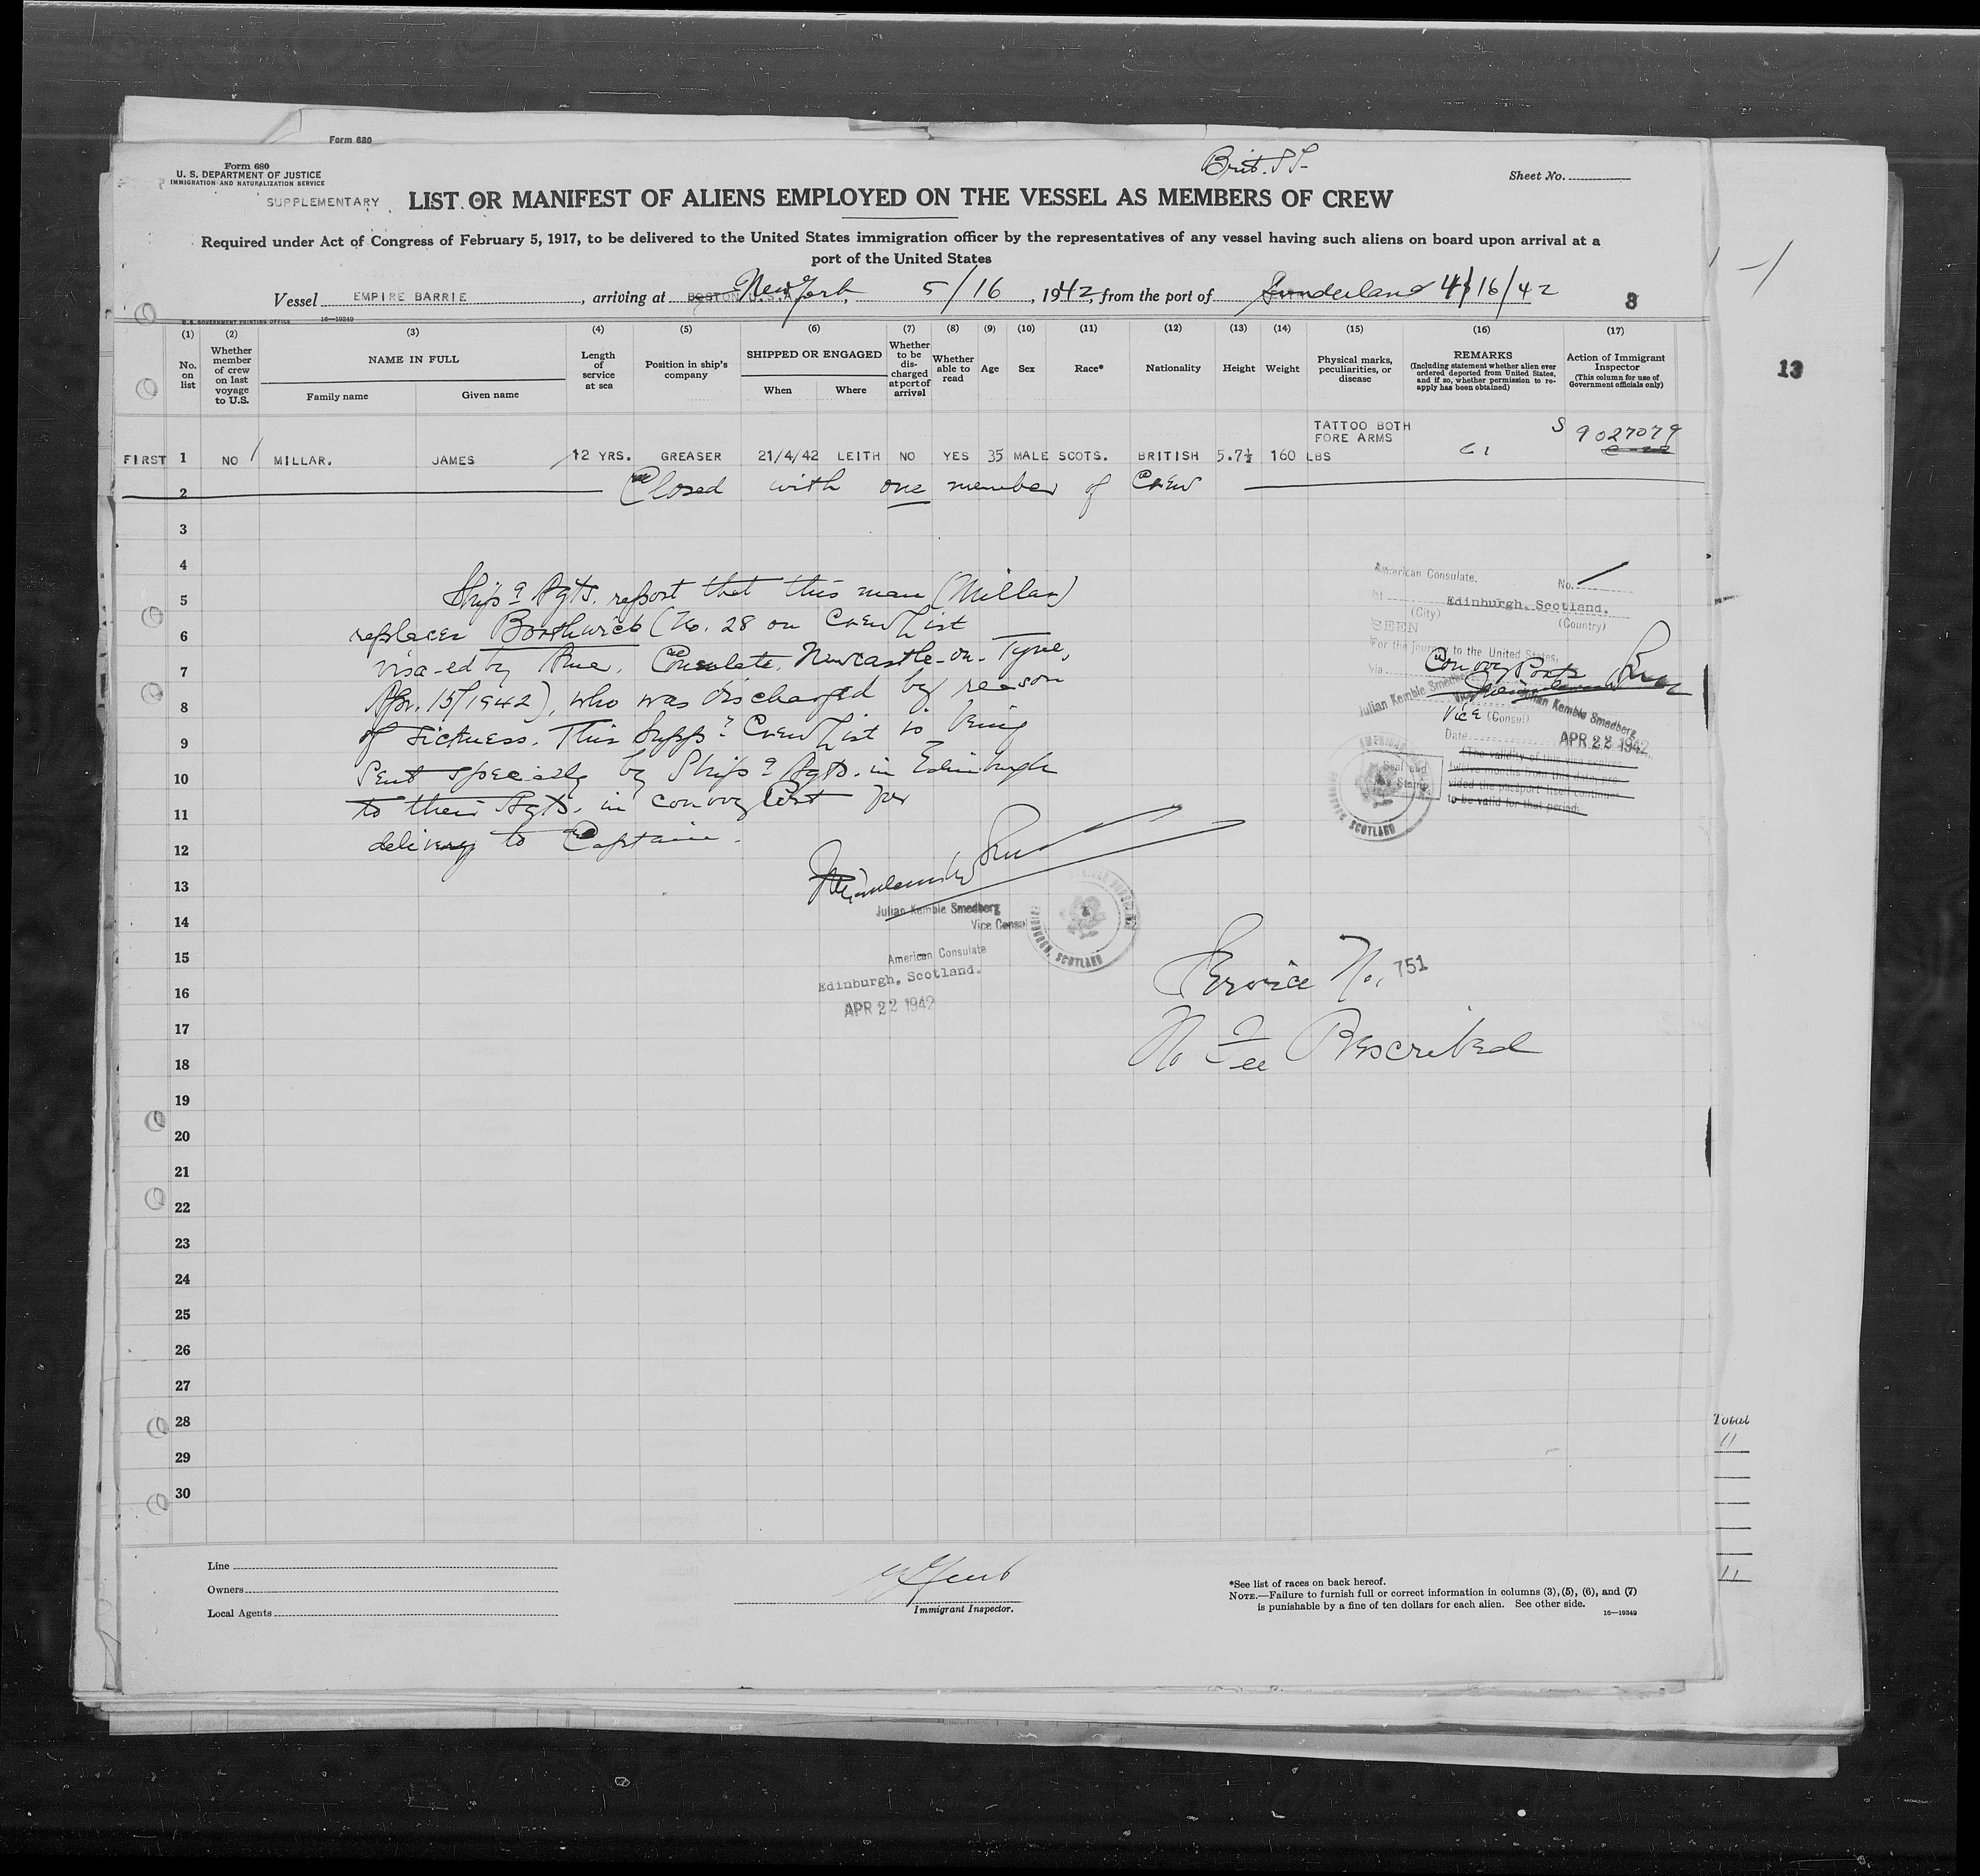 Form 680
Form 680
U. S. DEPARTMENT OF JUSTICE
IMMIGRATION AND NATURALIZATION SERVICE
Brit. S S
Sheet No.
SUPPLEMENTARY LIST OR MANIFEST OF ALIENS EMPLOYED ON THE VESSEL AS MEMBERS OF CREW
Required under Act of Congress of February 5, 1917, to be delivered to the United States immigration officer by the representatives of any vessel having such aliens on board upon arrival at a
port of the United States
Vessel EMPIRE BARRIE, arriving at BOSTON U.S.A. New York, 5/16, 1942, from the port of Sunderland 4/16/42
8
13
U. S. GOVERNMENT PRINTING OFFICE 16—19349
(1) (2) (3) (4) (5) (6) (7) (8) (9) (10) (11) (12) (13) (14) (15) (16) (17)
No. on list
Whether member of crew on last voyage to U.S.
NAME IN FULL
Family name
Given name
Length of service at sea
Position in ship's company
SHIPPED OR ENGAGED
When
Where
Whether to be discharged at port of arrival
Whether able to read
Age
Sex
Race*
Nationality
Height
Weight
Physical marks, peculiarities, or disease
REMARKS
(Including statement whether alien ever ordered deported from United States, and if so, whether permission to reapply has been obtained)
Action of Immigrant Inspector
(This column for use of Government officials only)
FIRST 1 NO MILLAR. JAMES 12 YRS. GREASER 21/4/42 LEITH NO YES 35 MALE SCOTS. BRITISH 5.7½ 160 LBS TATTOO BOTH FORE ARMS S 9027079
2 Closed with one member of Crew
3
4
5
6
7
8
9
10
11
12
13
14
15
16
17
18
19
20
21
22
23
24
25
26
27
28
29
30
Ship's Agts. report that this man (Millar)
replaces Borthwick (No. 28 on Crew List
visa-ed by Ame. Consulate, Newcastle-on-Tyne,
Apr. 15/1942), who was discharged by reason
of sickness. This Supp. Crew List is being
sent specially by Ship's Agts. in Edinburgh
to their Agts. in convoy Port for
delivery to Captain.
Julian Kemble Smedberg
Vice Consul
American Consulate
Edinburgh, Scotland.
APR 22 1942
AMERICAN CONSULATE
EDINBURGH, SCOTLAND
American Consulate,
No.
at Edinburgh, Scotland.
(City) (Country)
SEEN
For the journey to the United States,
Via Convoy Ports
Julian Kemble Smedberg
Julian Kemble Smedberg
Vice (Consul)
Date APR 22 1942
(The validity of this visa expires
twelve months from this date, pro-
vided the passport itself continues
to be valid for that period)
Seal and
Stamp
EDINBURGH, SCOTLAND
Service No. 751
No Fee Prescribed
Total
11
11
Line
Owners
Local Agents
Immigrant Inspector.
*See list of races on back hereof.
NOTE.—Failure to furnish full or correct information in columns (3), (5), (6), and (7)
is punishable by a fine of ten dollars for each alien. See other side.
16—19349